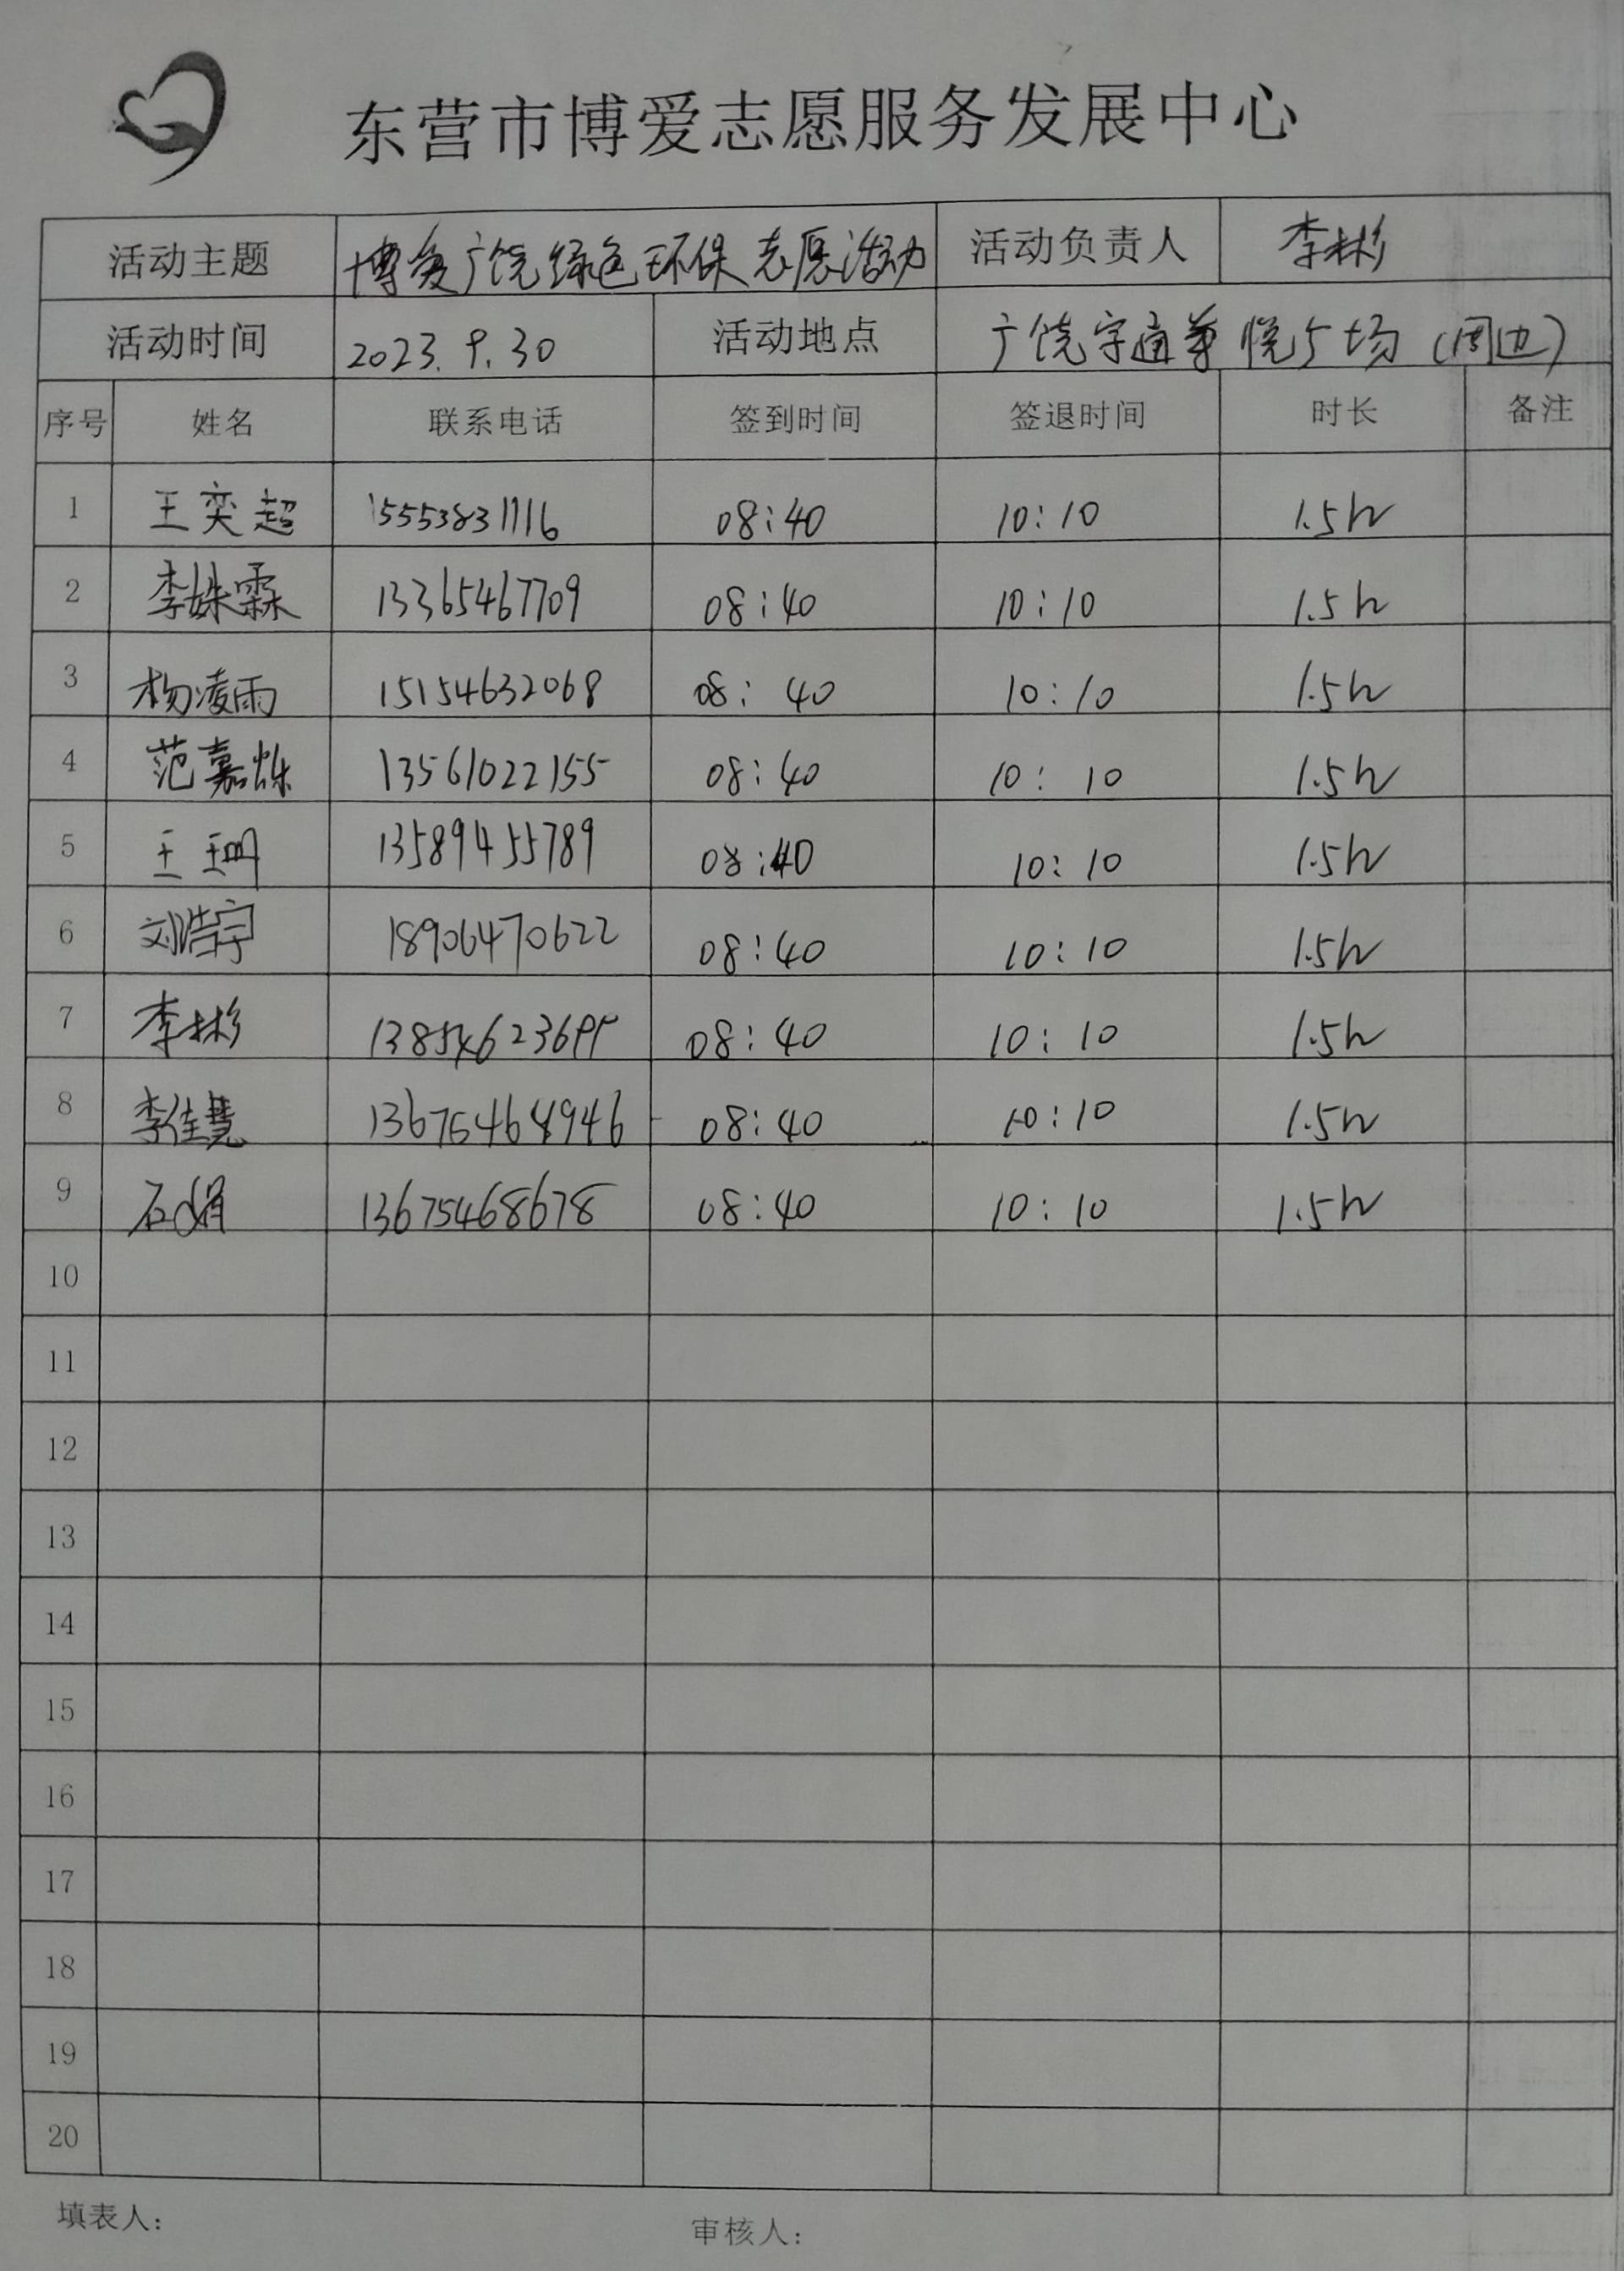 东营市博爱志愿服务发展中心
活动主题 博爱广饶绿色环保志愿活动 活动负责人 李彬
活动时间 2023.9.30 活动地点 广饶宇通尊悦广场(周边)
序号 姓名 联系电话 签到时间 签退时间 时长 备注
1 王奕超 15553831116 08:40 10:10 1.5h
2 李姝霖 13365467709 08:40 10:10 1.5h
3 杨凌雨 15154632068 08:40 10:10 1.5h
4 范嘉烁 13561022155 08:40 10:10 1.5h
5 王珊 13589455789 08:40 10:10 1.5h
6 刘浩宇 18906470622 08:40 10:10 1.5h
7 李彬 08:40 10:10 1.5h
8 李佳慧 08:40 10:10 1.5h
9 石娟 13675468678 08:40 10:10 1.5h
10
11
12
13
14
15
16
17
18
19
20
填表人: 审核人: